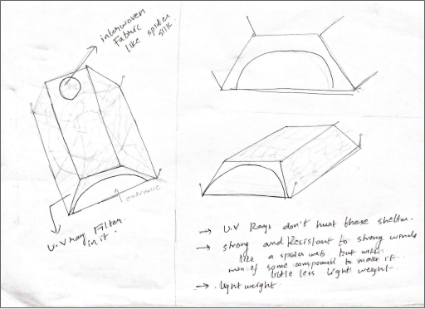 interwoven
Fabric
like spider
silk
entrance
U.V ray Filter
in it.
→ U.V Rays don't hurt these shelter.
→ strong and Resistant to strong winds
like a spider web but
of some compound to make it
little less light weight.
→ light weight.